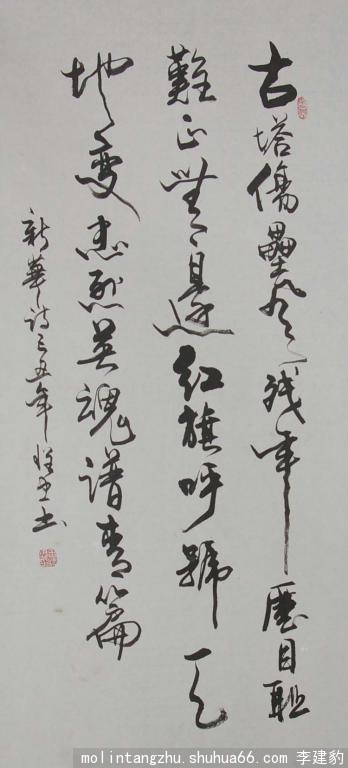 古塔傷壘残年歷目耻
難正無邊紅旗呼號天
地变忠烈英魂譜青篇
新華詩三五年
molintangzhu.shuhua66.com 李建豹